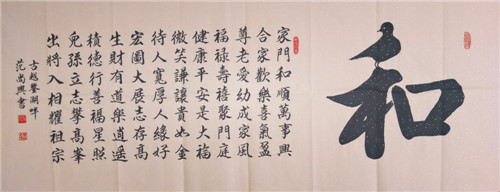 和
家門和順萬事興
合家歡樂喜氣盈
尊老愛幼成家風
福禄壽禧聚門庭
健康平安是大福
微笑謙讓貴如金
待人寬厚人緣好
宏圖大展志存高
生財有道樂逍遥
積德行善福星照
兒孫立志攀高峯
出將入相耀祖宗
古越鑒湖畔
范尚興書